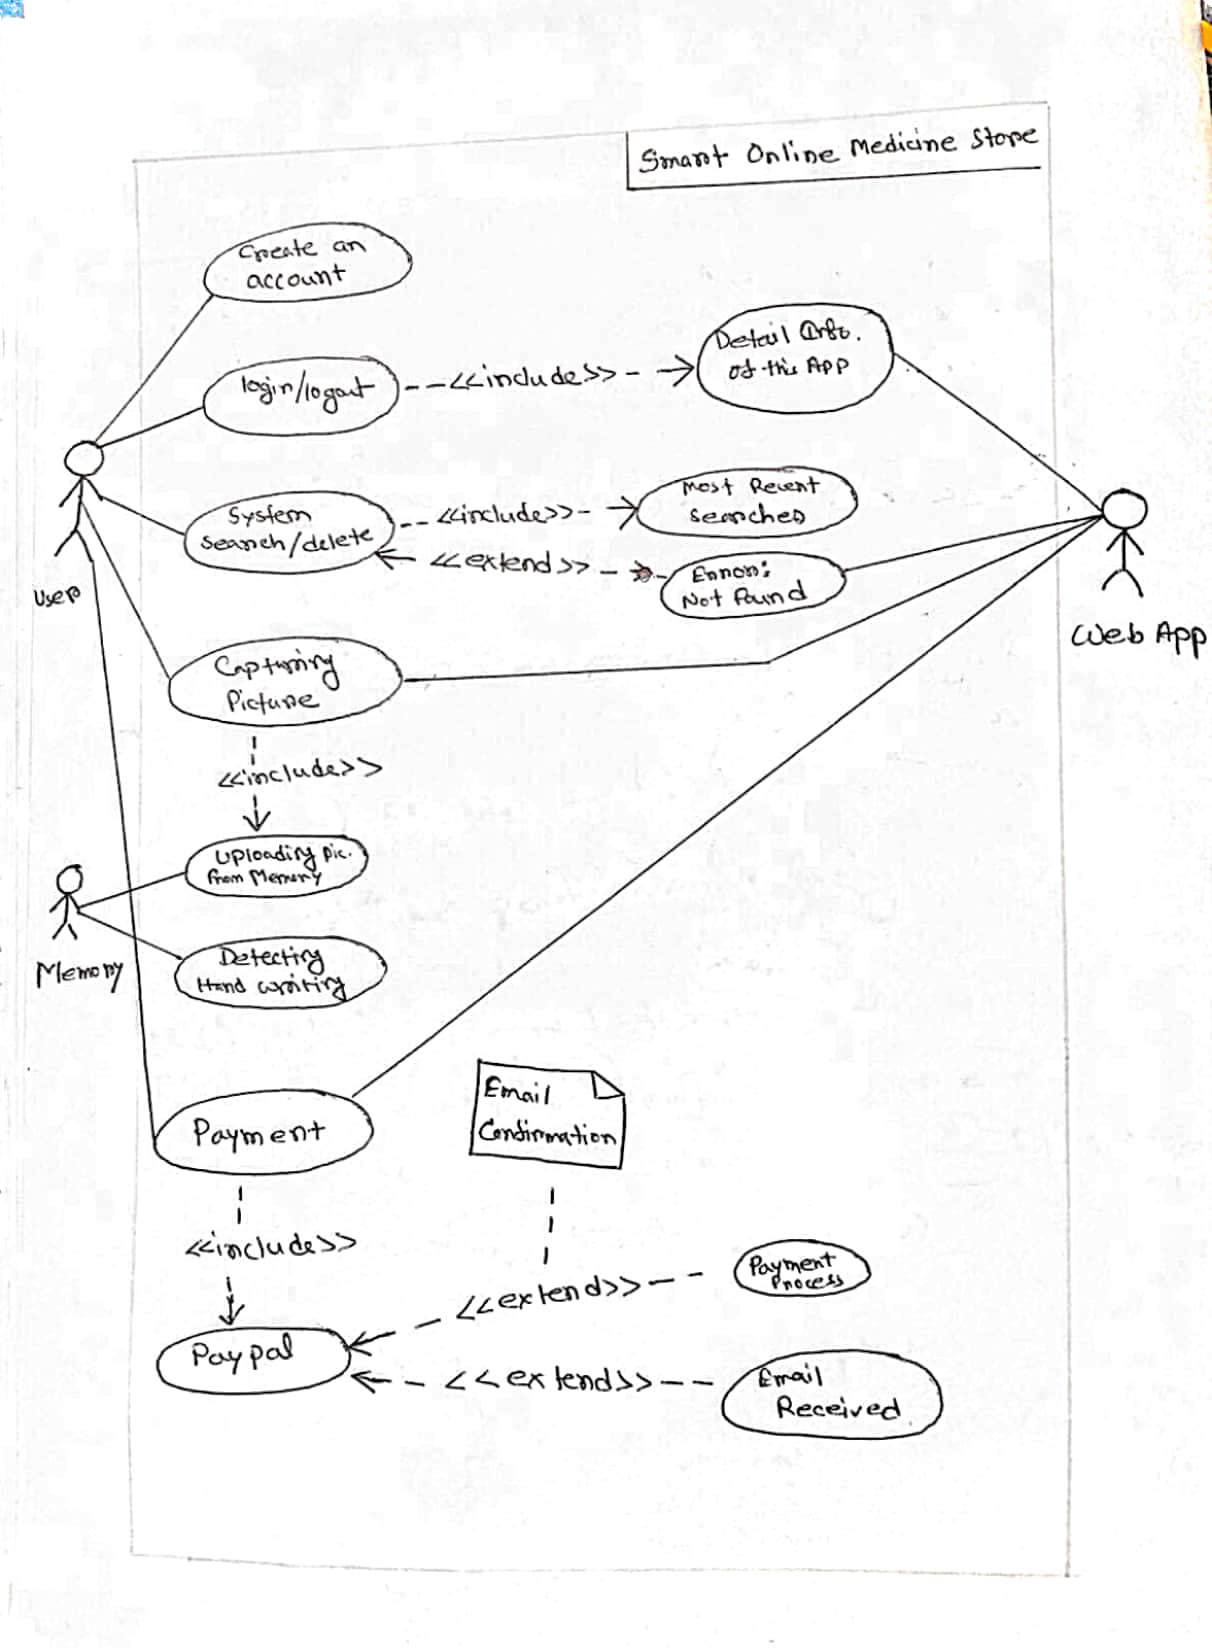 Smart Online Medicine Store
Create an
account
login/logout
--<<include>>-->
Detail Info.
of this App
System
search/delete
--<<include>>-->
Most Recent
Searches
<<extend>>
Error:
Not Found
User
Web App
Capturing
Picture
<<include>>
Uploading pic.
from Memory
Memory
Detecting
Hand writing
Payment
Email
Confirmation
<<include>>
<<extend>>
Payment
Process
Paypal
<<extend>>
Email
Received